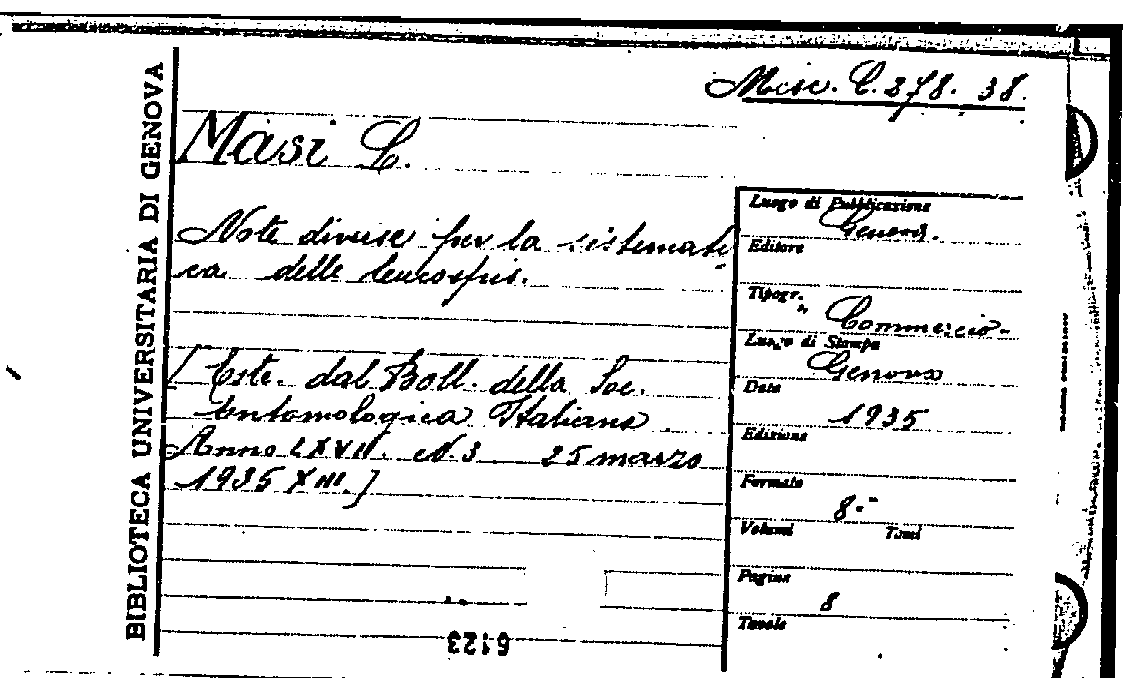 BIBLIOTECA UNIVERSITARIA DI GENOVA
Misc. C. 278. 38.
Masi L.
Note diverse per la sistemati
ca delle leucospis.
[Estr. dal Boll. della Soc.
Entomologica Italiana
Anno LXVII. N. 3 25 marzo
1935 XIII.]
Luogo di Pubblicazione
Genova.
Editore
Tipogr.
Commercio-
Luogo di Stampa
Genova
Data
1935
Edizione
Formato
8.-
Volumi Tomi
Pagine
8
Tavole
6123